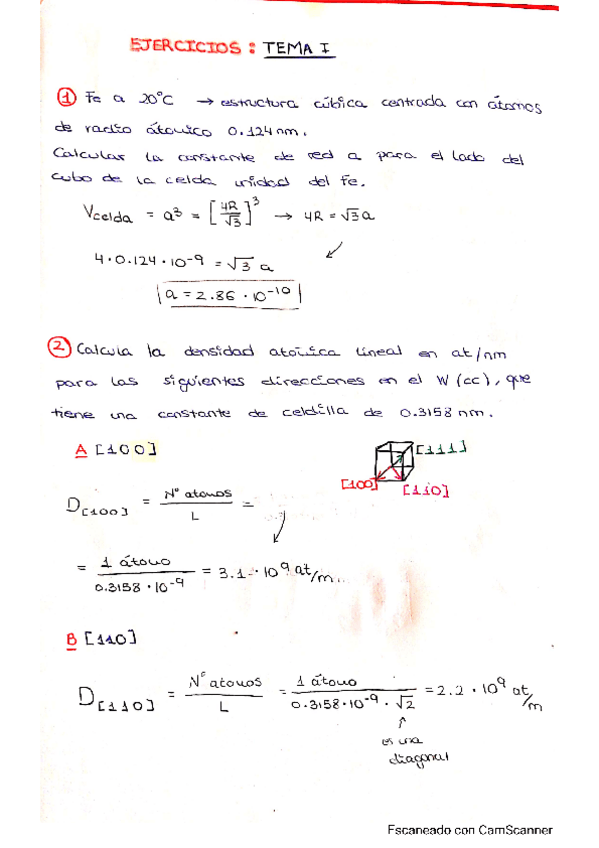 EJERCICIOS: TEMA I
① Fe a 20°C → estructura cúbica centrada con átomos
de radio átomico 0.124 nm.
Calcular la constante de red a para el lado del
cubo de la celda unidad del Fe.
Vcelda = a³ = [4R/√3]³ → 4R = √3a
4·0.124·10⁻⁹ = √3 a
a = 2.86·10⁻¹⁰
② Calcula la densidad atómica lineal en at/nm
para las siguientes direcciones en el W (cc), que
tiene una constante de celdilla de 0.3158 nm.
A [100]
[111]
[100]
[110]
D[100] = Nº atomos / L =
= 1 átomo / 0.3158·10⁻⁹ = 3.1·10⁹ at/m.
B [110]
D[110] = Nº atomos / L = 1 átomo / 0.3158·10⁻⁹·√2 = 2.2·10⁹ at/m
↑
es una
diagonal
Escaneado con CamScanner